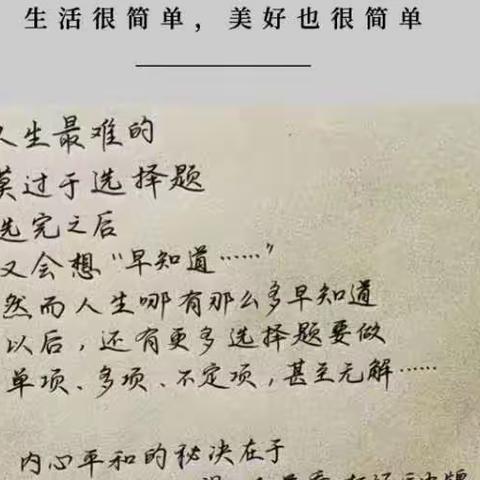 生活很简单，美好也很简单
人生最难的
莫过于选择题
选完之后
又会想“早知道……”
然而人生哪有那么多早知道
以后，还有更多选择题要做
单项、多项、不定项，甚至无解……
内心平和的秘决在于